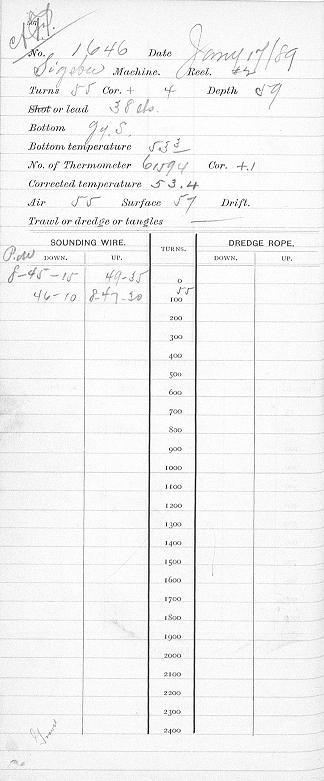 No. 1646 Date Jany 17/89
Sigsbee Machine. Reel. #2
Turns 55 Cor. + 4 Depth 59
Shot or lead 38 lbs.
Bottom gy. S.
Bottom temperature 53 3
No. of Thermometer 61594 Cor. +.1
Corrected temperature 53.4
Air 55 Surface 57 Drift.
Trawl or dredge or tangles —
SOUNDING WIRE. TURNS. DREDGE ROPE.
P.M. DOWN. UP. DOWN. UP.
8-45-15 49-35 0
55
46-10 8-47-30 100
200
300
400
500
600
700
800
900
1000
1100
1200
1300
1400
1500
1600
1700
1800
1900
2000
2100
2200
2300
2400